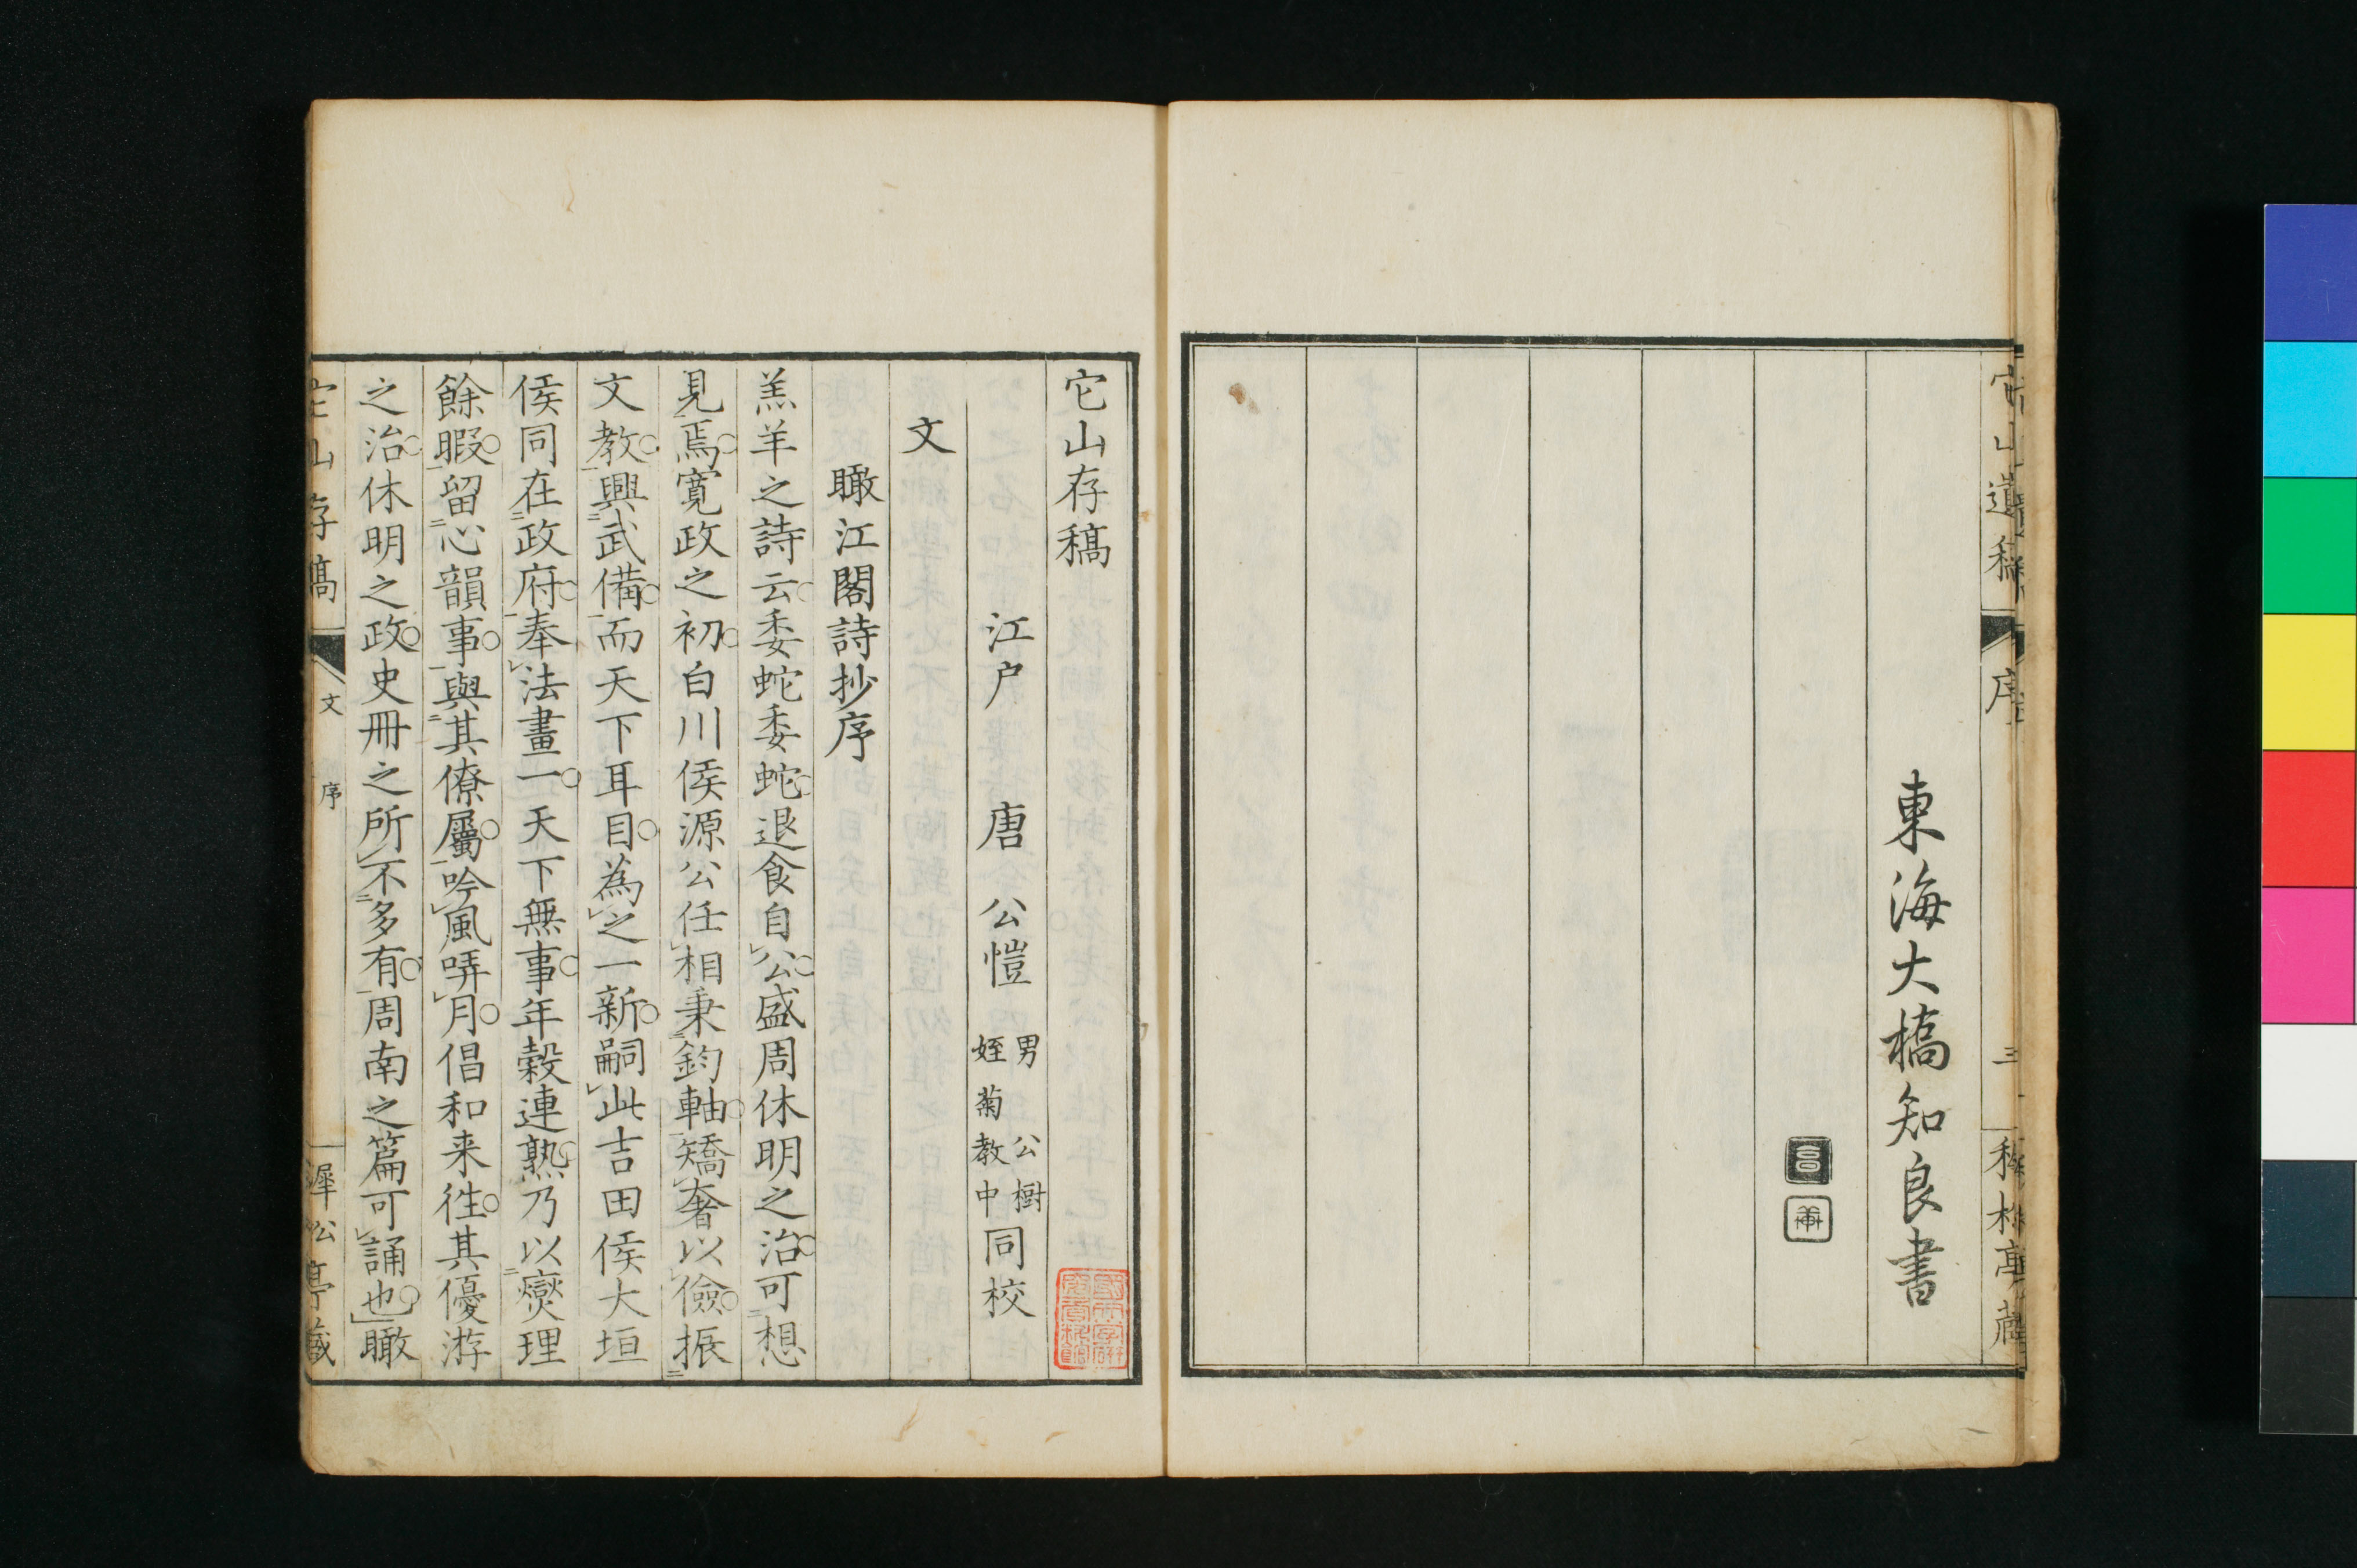 東海大橋知良書
它山存稿
江户 唐 公愷 男 公櫥
姪 菊教中 同校
文
瞰江閣詩抄序
羔羊之詩云委蛇委蛇退食自公盛周休明之治可想
見焉寛政之初白川侯源公任相秉鈞軸矯奢以儉振
文教興武備而天下耳目為之一新嗣此吉田侯大垣
侯同在政府奉法畫一天下無事年穀連熟乃以燮理
餘暇留心韻事與其僚屬吟風哢月倡和来徃其優游
之治休明之政史冊之所不多有周南之篇可誦也瞰
它山存稿 文 序